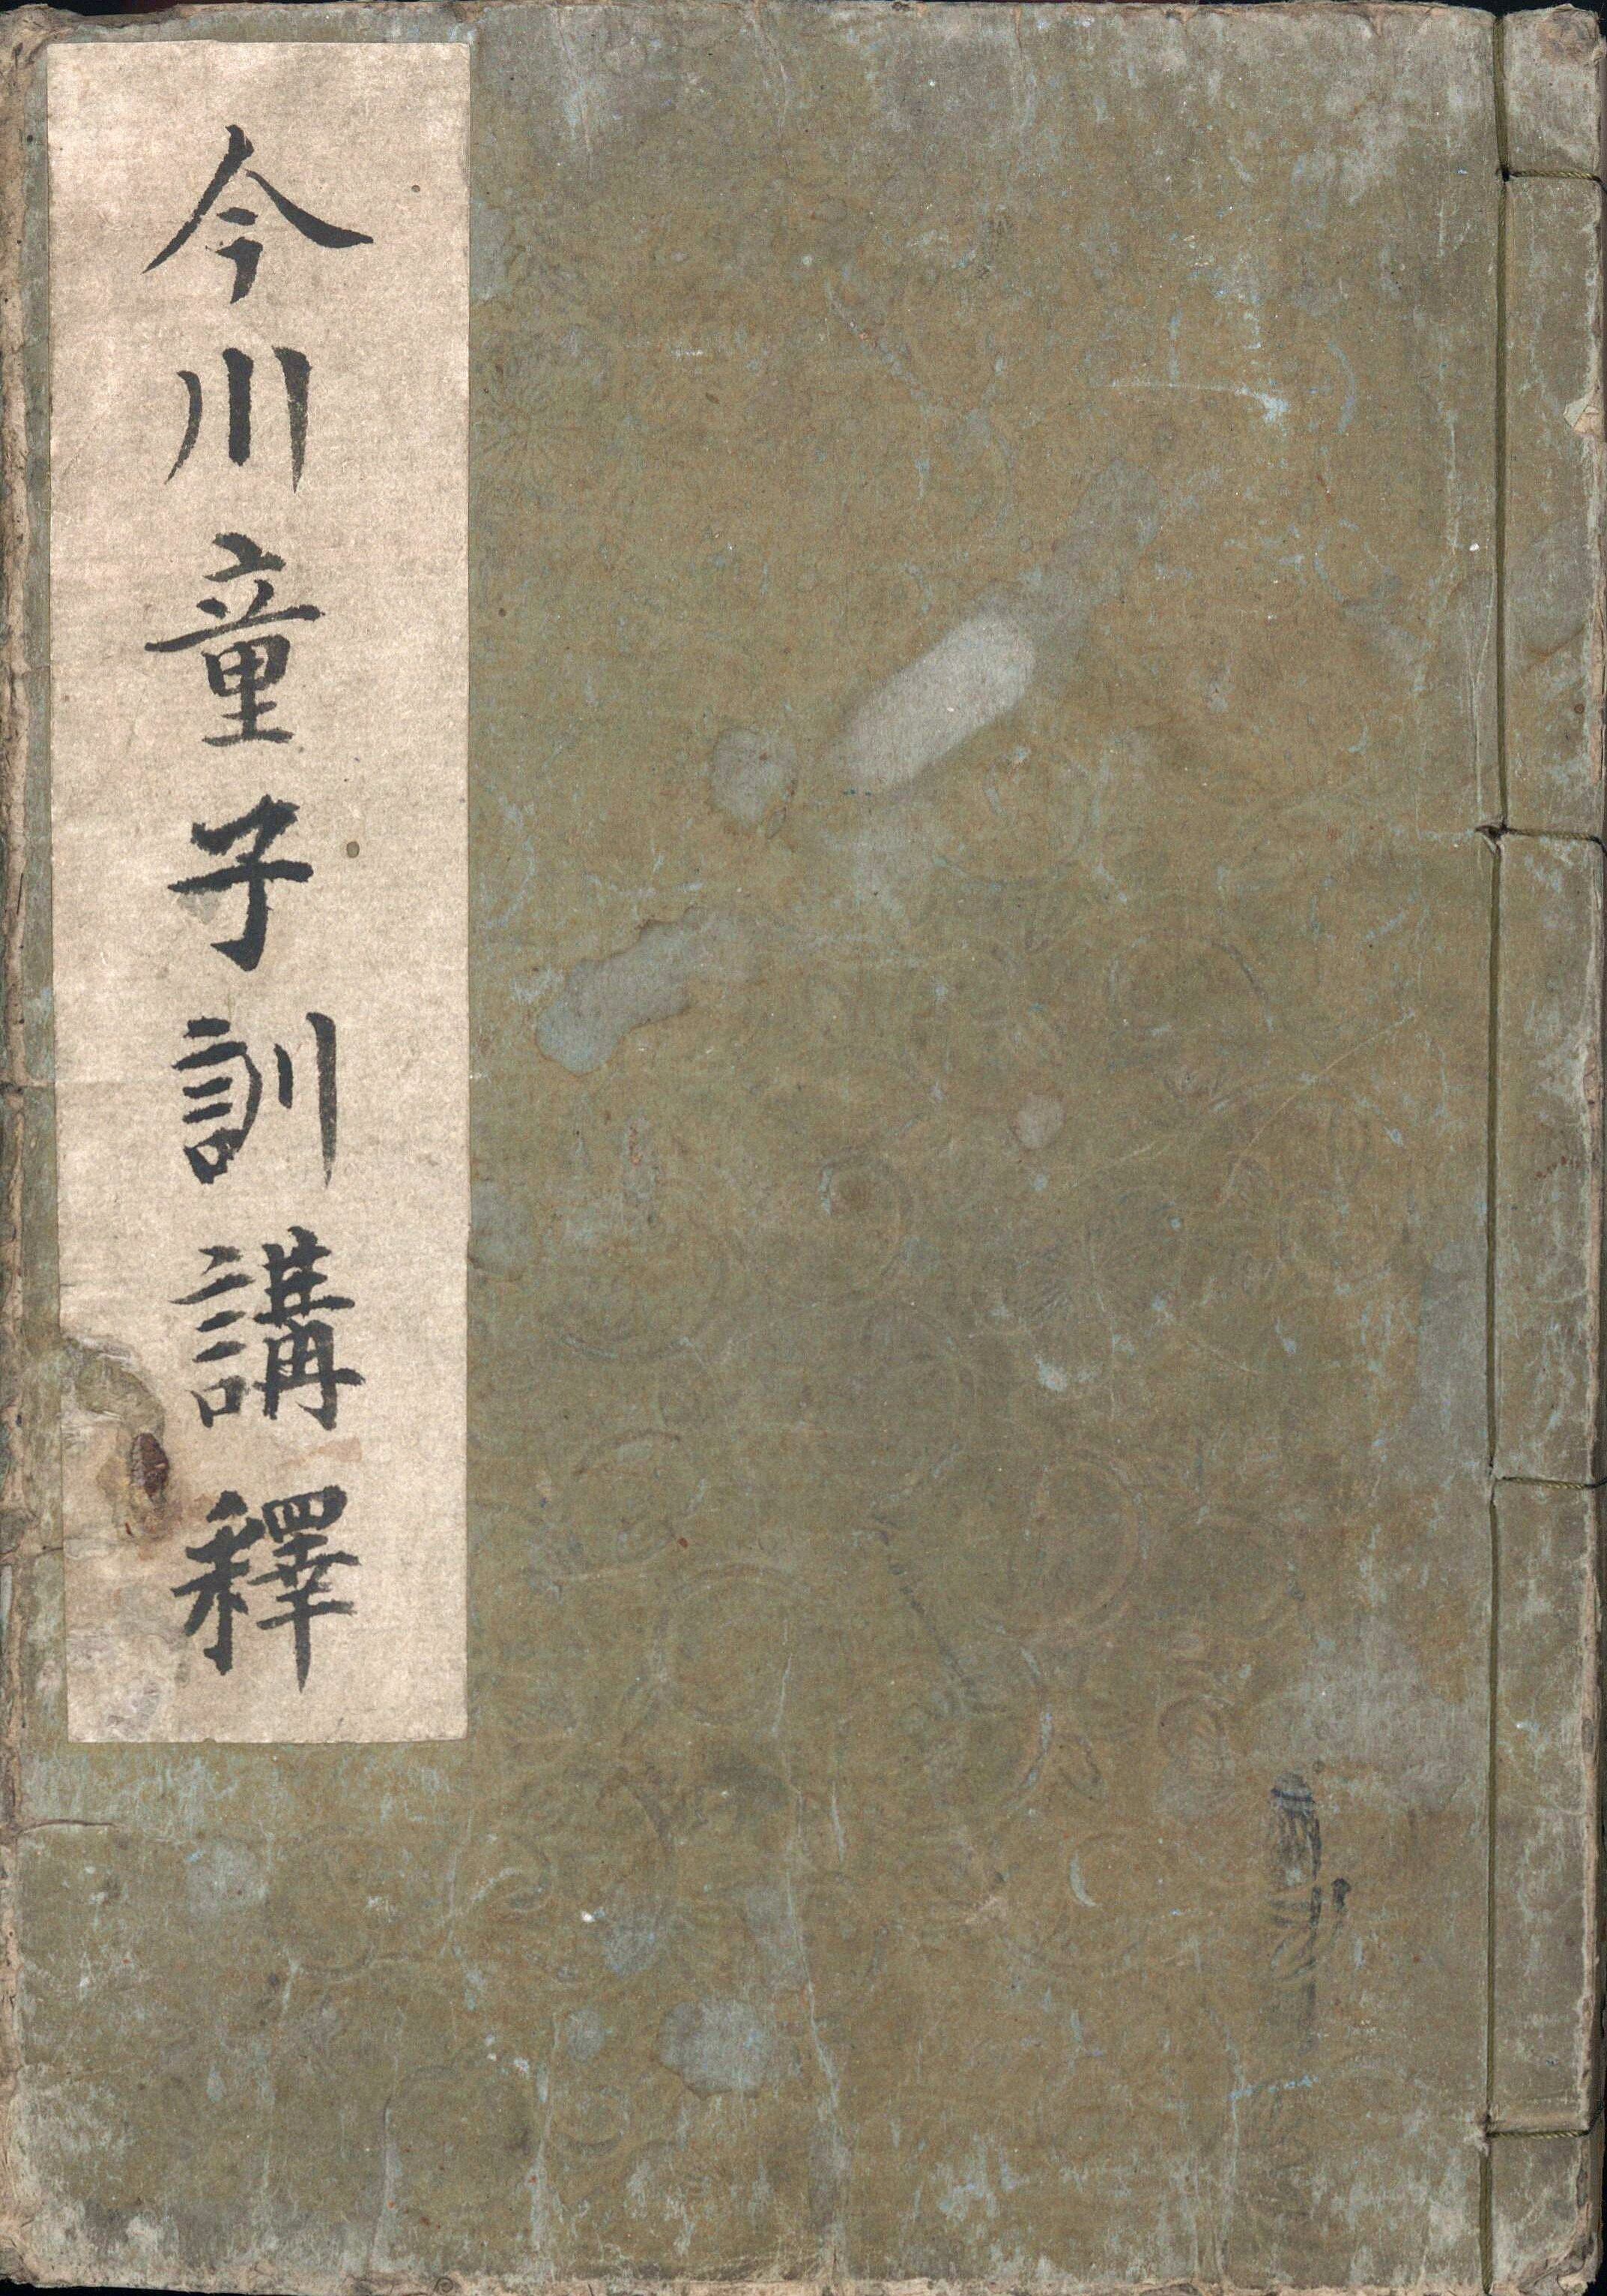 今川童子訓講釋